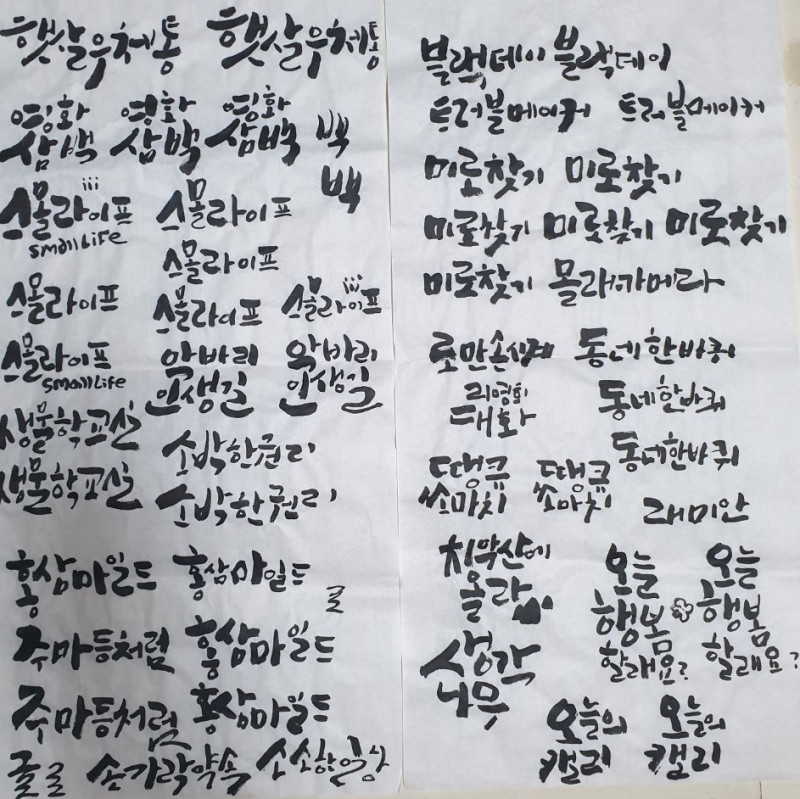 햇살우체통 햇살우체통
영화 영화 영화
삼백 삼백 삼백 백
백
스몰라이프 스몰라이프
small life
스몰라이프
스몰라이프 스몰라이프 스몰라이프
스몰라이프 악바리 악바리
small life 인생길 인생길
생물학교실 소박한권리
생물학교실 소박한권리
홍삼마일드 홍삼마일드
로
주마등처럼 홍삼마일드
주마등처럼 홍삼마일드
글로 손가락약속 소소한일상
블랙데이 블랙데이
트러블메이커 트러블메이커
미로찾기 미로찾기
미로찾기 미로찾기 미로찾기
미로찾기 몰래카메라
로만손시계 동네한바퀴
리영희 동네한바퀴
대화
동네한바퀴
땡큐 땡큐
쏘마치 쏘마치
래미안
치악산에
올라
오늘 오늘
행봄 행봄
할래요? 할래요?
생각
나무
오늘의 오늘의
캘리 캘리